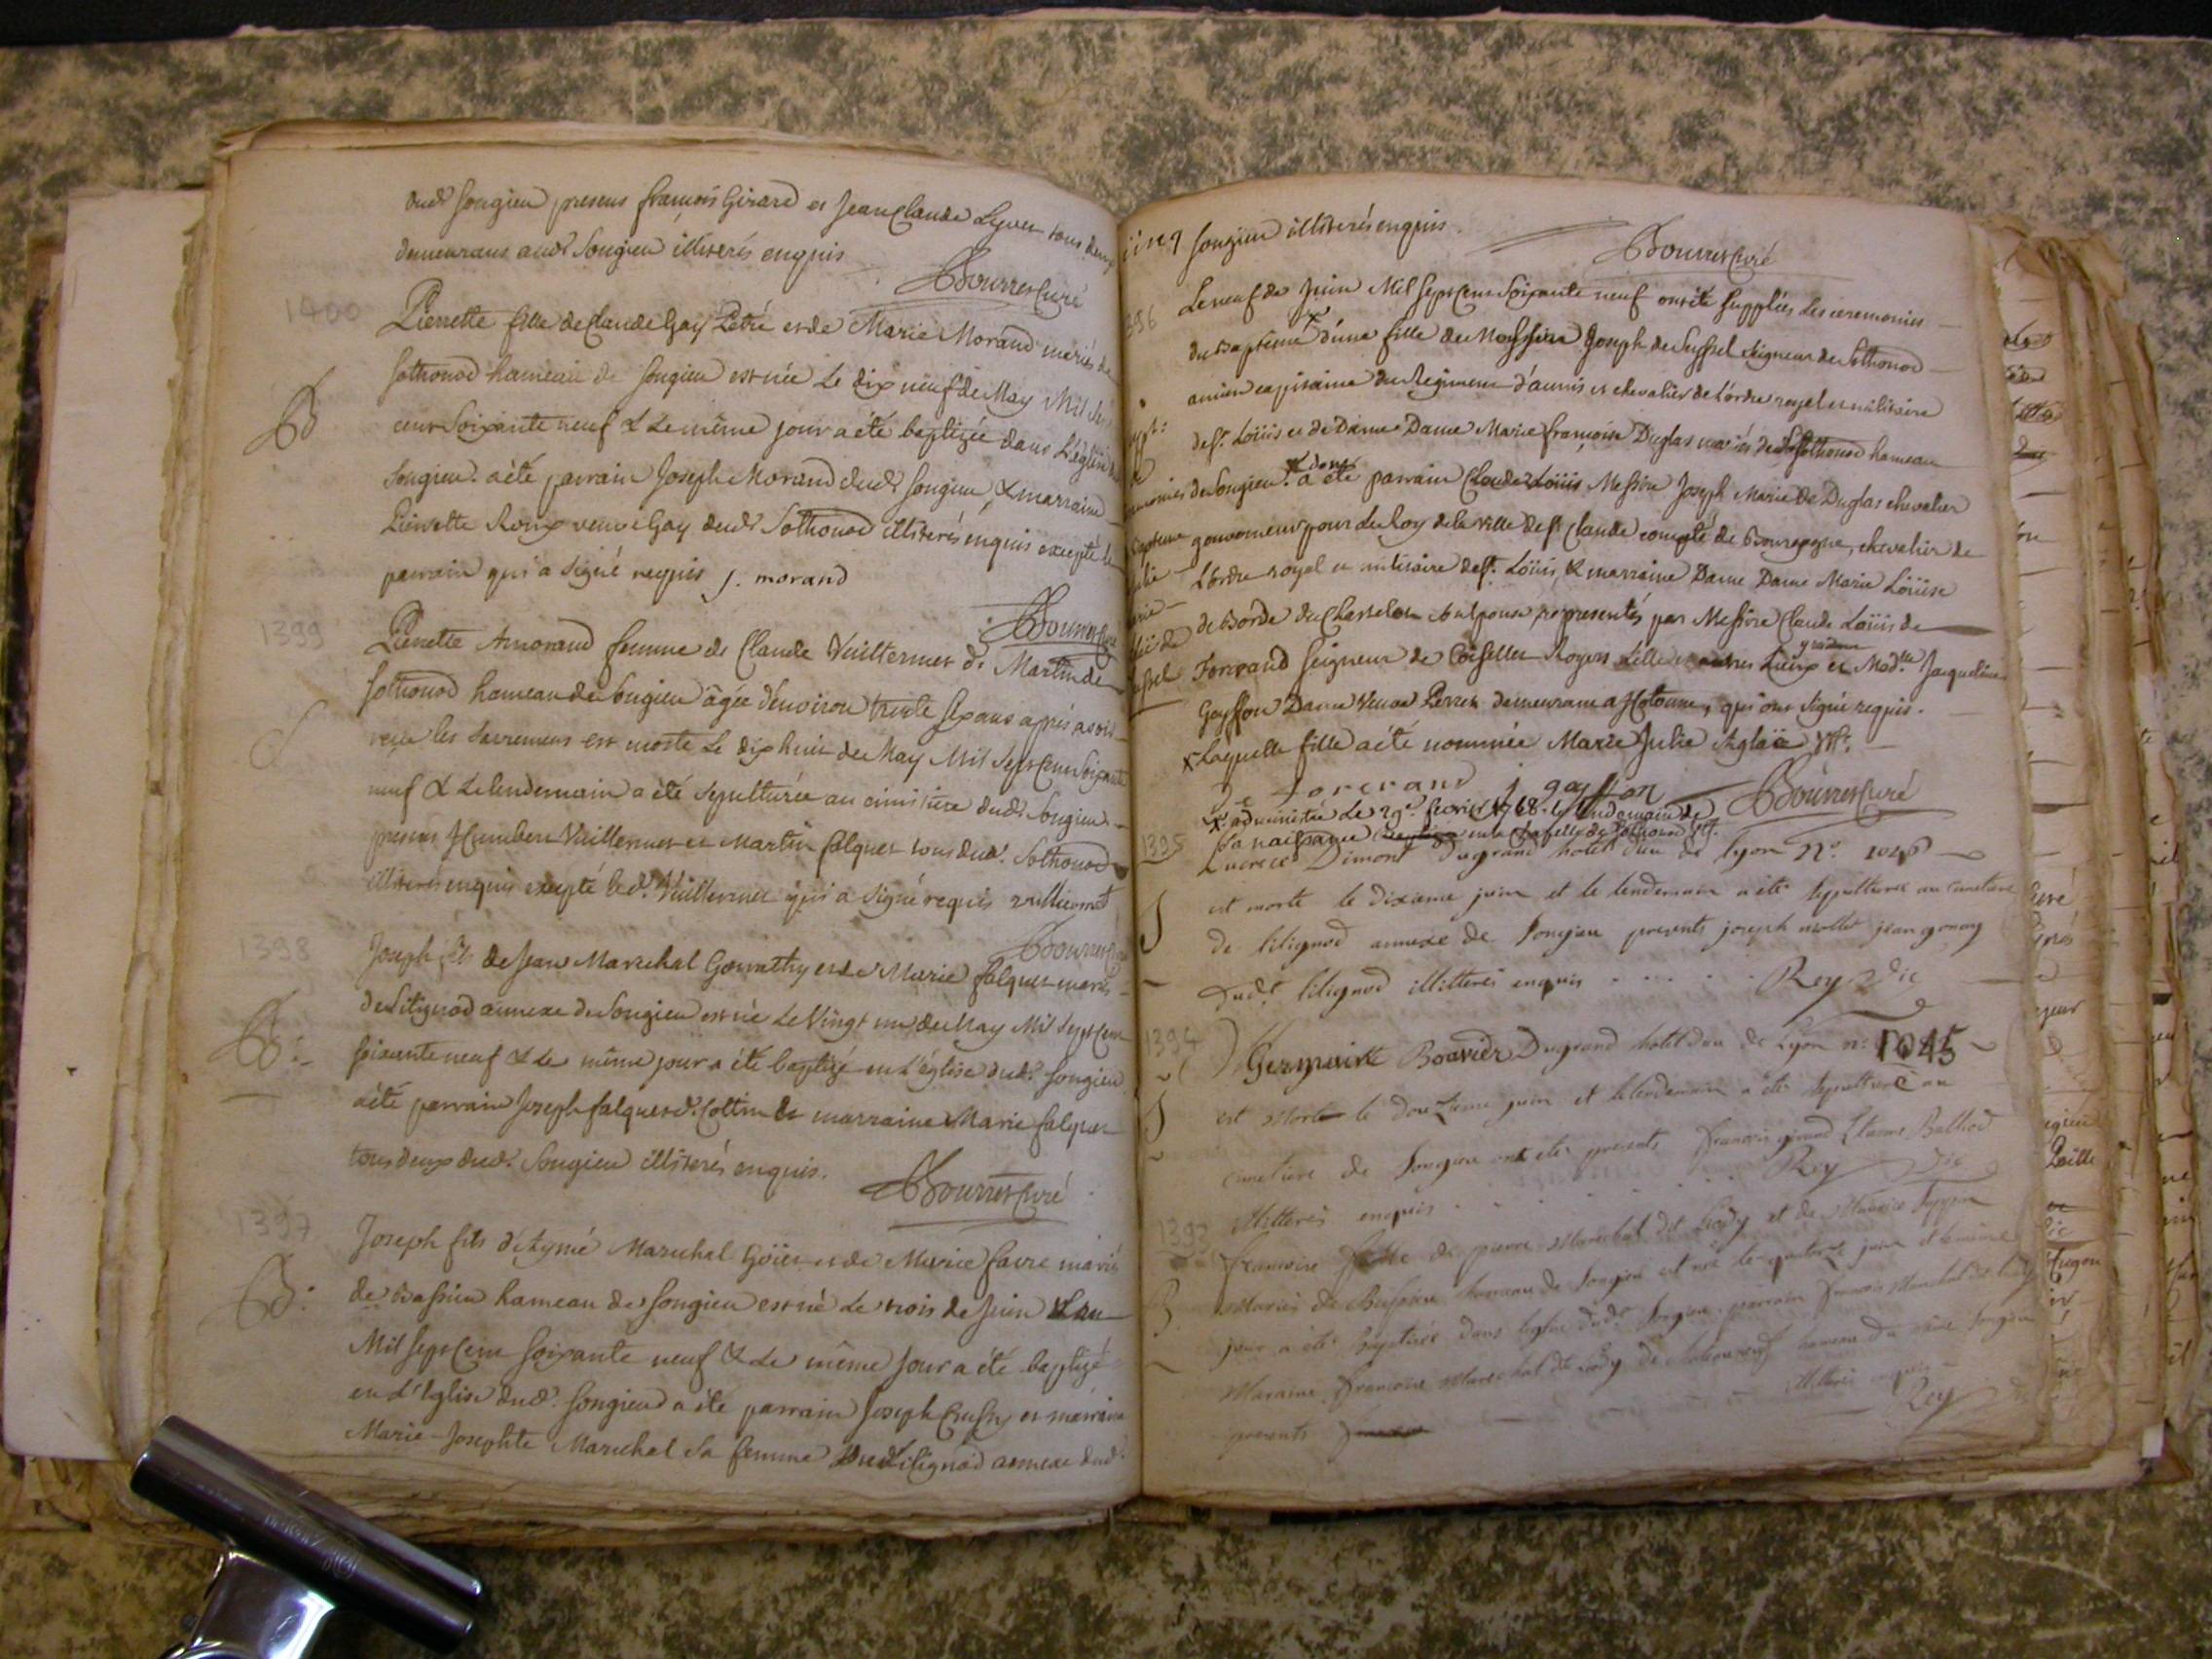 dud. Songieu presens françois Girard et Jean Claude Lyvet tous deux
demeurans aud. Songieu illiterés enquis
Bourret Curé
1400
Pierrette fille de Claude Gay Petré et de Marie Morand mariés de
Sothonod hameau de Songieu est née Le dix neuf de May Mil sept
B
cent Soixante neuf & Le même jour a été baptizée dans L'église de
Songieu. a été parrain Joseph Morand dud. Songieu, & marraine
Pierrette Roux veuve Gay dud. Sothonod illiterés enquis excepté le
parrain qui a signé requis j. morand
Bourret Curé
1399
Pierrette Anorand femme de Claude Vuillermet de Martin de
Sothonod hameau de Songieu âgée d'environ trente six ans après avoir
S
reçu les sacremens est morte Le dix huit de May Mil Sept Cent Soixante
neuf & Le lendemain a été sepulturée au cimetière dud. Songieu
presens Humbert Vuillermet et Martin falquet tous dud. Sothonod
illiterés enquis excepté led. Vuillermet qui a signé requis vulliermet
Bourret Curé
1398
Joseph fils de Jean Marechal Gonrathy et de Marie falquet mariés
de Litignod annexe de Songieu est né Le Vingt un de May Mil Sept Cent
B.
soixante neuf & Le même jour a été baptizé en L'église dud. Songieu
a été parrain Joseph falquet d. Cottin & marraine Marie falquet
tous deux dud. Songieu illiterés enquis.
Bourret Curé
1397
Joseph fils d'Aymé Marechal Goïet et de Marie favre mariés
B.
de Bassieu hameau de Songieu est né Le trois de Juin
Mil Sept Cent Soixante neuf & Le même Jour a été baptizé
en L'Eglise dud. Songieu a été parrain Joseph et marraine
Marie-Josephte Marechal Sa femme Litignod annexe dud.
Songieu illiterés enquis.
Bourret Curé
396
Le neuf de Juin Mil Sept Cent Soixante neuf ont été Suppléés Les ceremonies
du Baptême x d'une fille de Messire Joseph de Seyssel Seigneur de Sothonod
ancien capitaine du Regiment d'aunis et chevalier de L'ordre royal et militaire
de St. Loüis et de Dame Dame Marie françoise Duglas mariés de Sothonod hameau
de Songieu. a été parrain Messire Joseph Marie De Duglas chevalier
gouverneur pour Le Roy de la Ville de St. Claude comté de Bourgogne, chevalier de
L'ordre royal et militaire de St. Loüis, & marraine Dame Dame Marie Loüise
de Borde du Chatelet representés par Messire Claude Loüis de
Forcrand Seigneur de Coiselet Rogers Lille et autres Lieux et Mad.lle Jaqueline
Gayffon Dame Veuve Perret demeurant a Hotonne, qui ont signé requis.
x Laquelle fille a été nommée Marie Julie Aglaë
De forcrand j gayffon Bourret Curé
x administré Le 29e. fevrier 1768. le lendemain de
Sa naissance en la Chapelle de Sothonod
1395
Lucrece Dimont Du grand hotel dieu de Lyon No. 1048
S
est morte le dixieme juin et le lendemain a été sepulturée au cimetiere
de litignod annexe de Songieu presents joseph mollet jean
Dud. litignod illitterés enquis . . . . Rey Vic
1394
Germaine Bouvier Du grand hotel dieu de Lyon no. 1045
S
est Morte le Douzieme juin et le lendemain a été sepulturée au
cimetiere de Songieu ont été presents francois girard Etienne Balliod
illitterés enquis . . . . Rey Vic
1393
francoise fille de pierre Marechal dit Liody et de Maurice
B.
Mariés de Bassieu hameau de Songieu est née le quatorze juin et le même
jour a été baptisée Dans leglise Dud. Songieu. parrain francois Marechal dit
Maraine francoise Marechal dit Liody de hameau du même Songieu
presents illitterés enquis
Rey